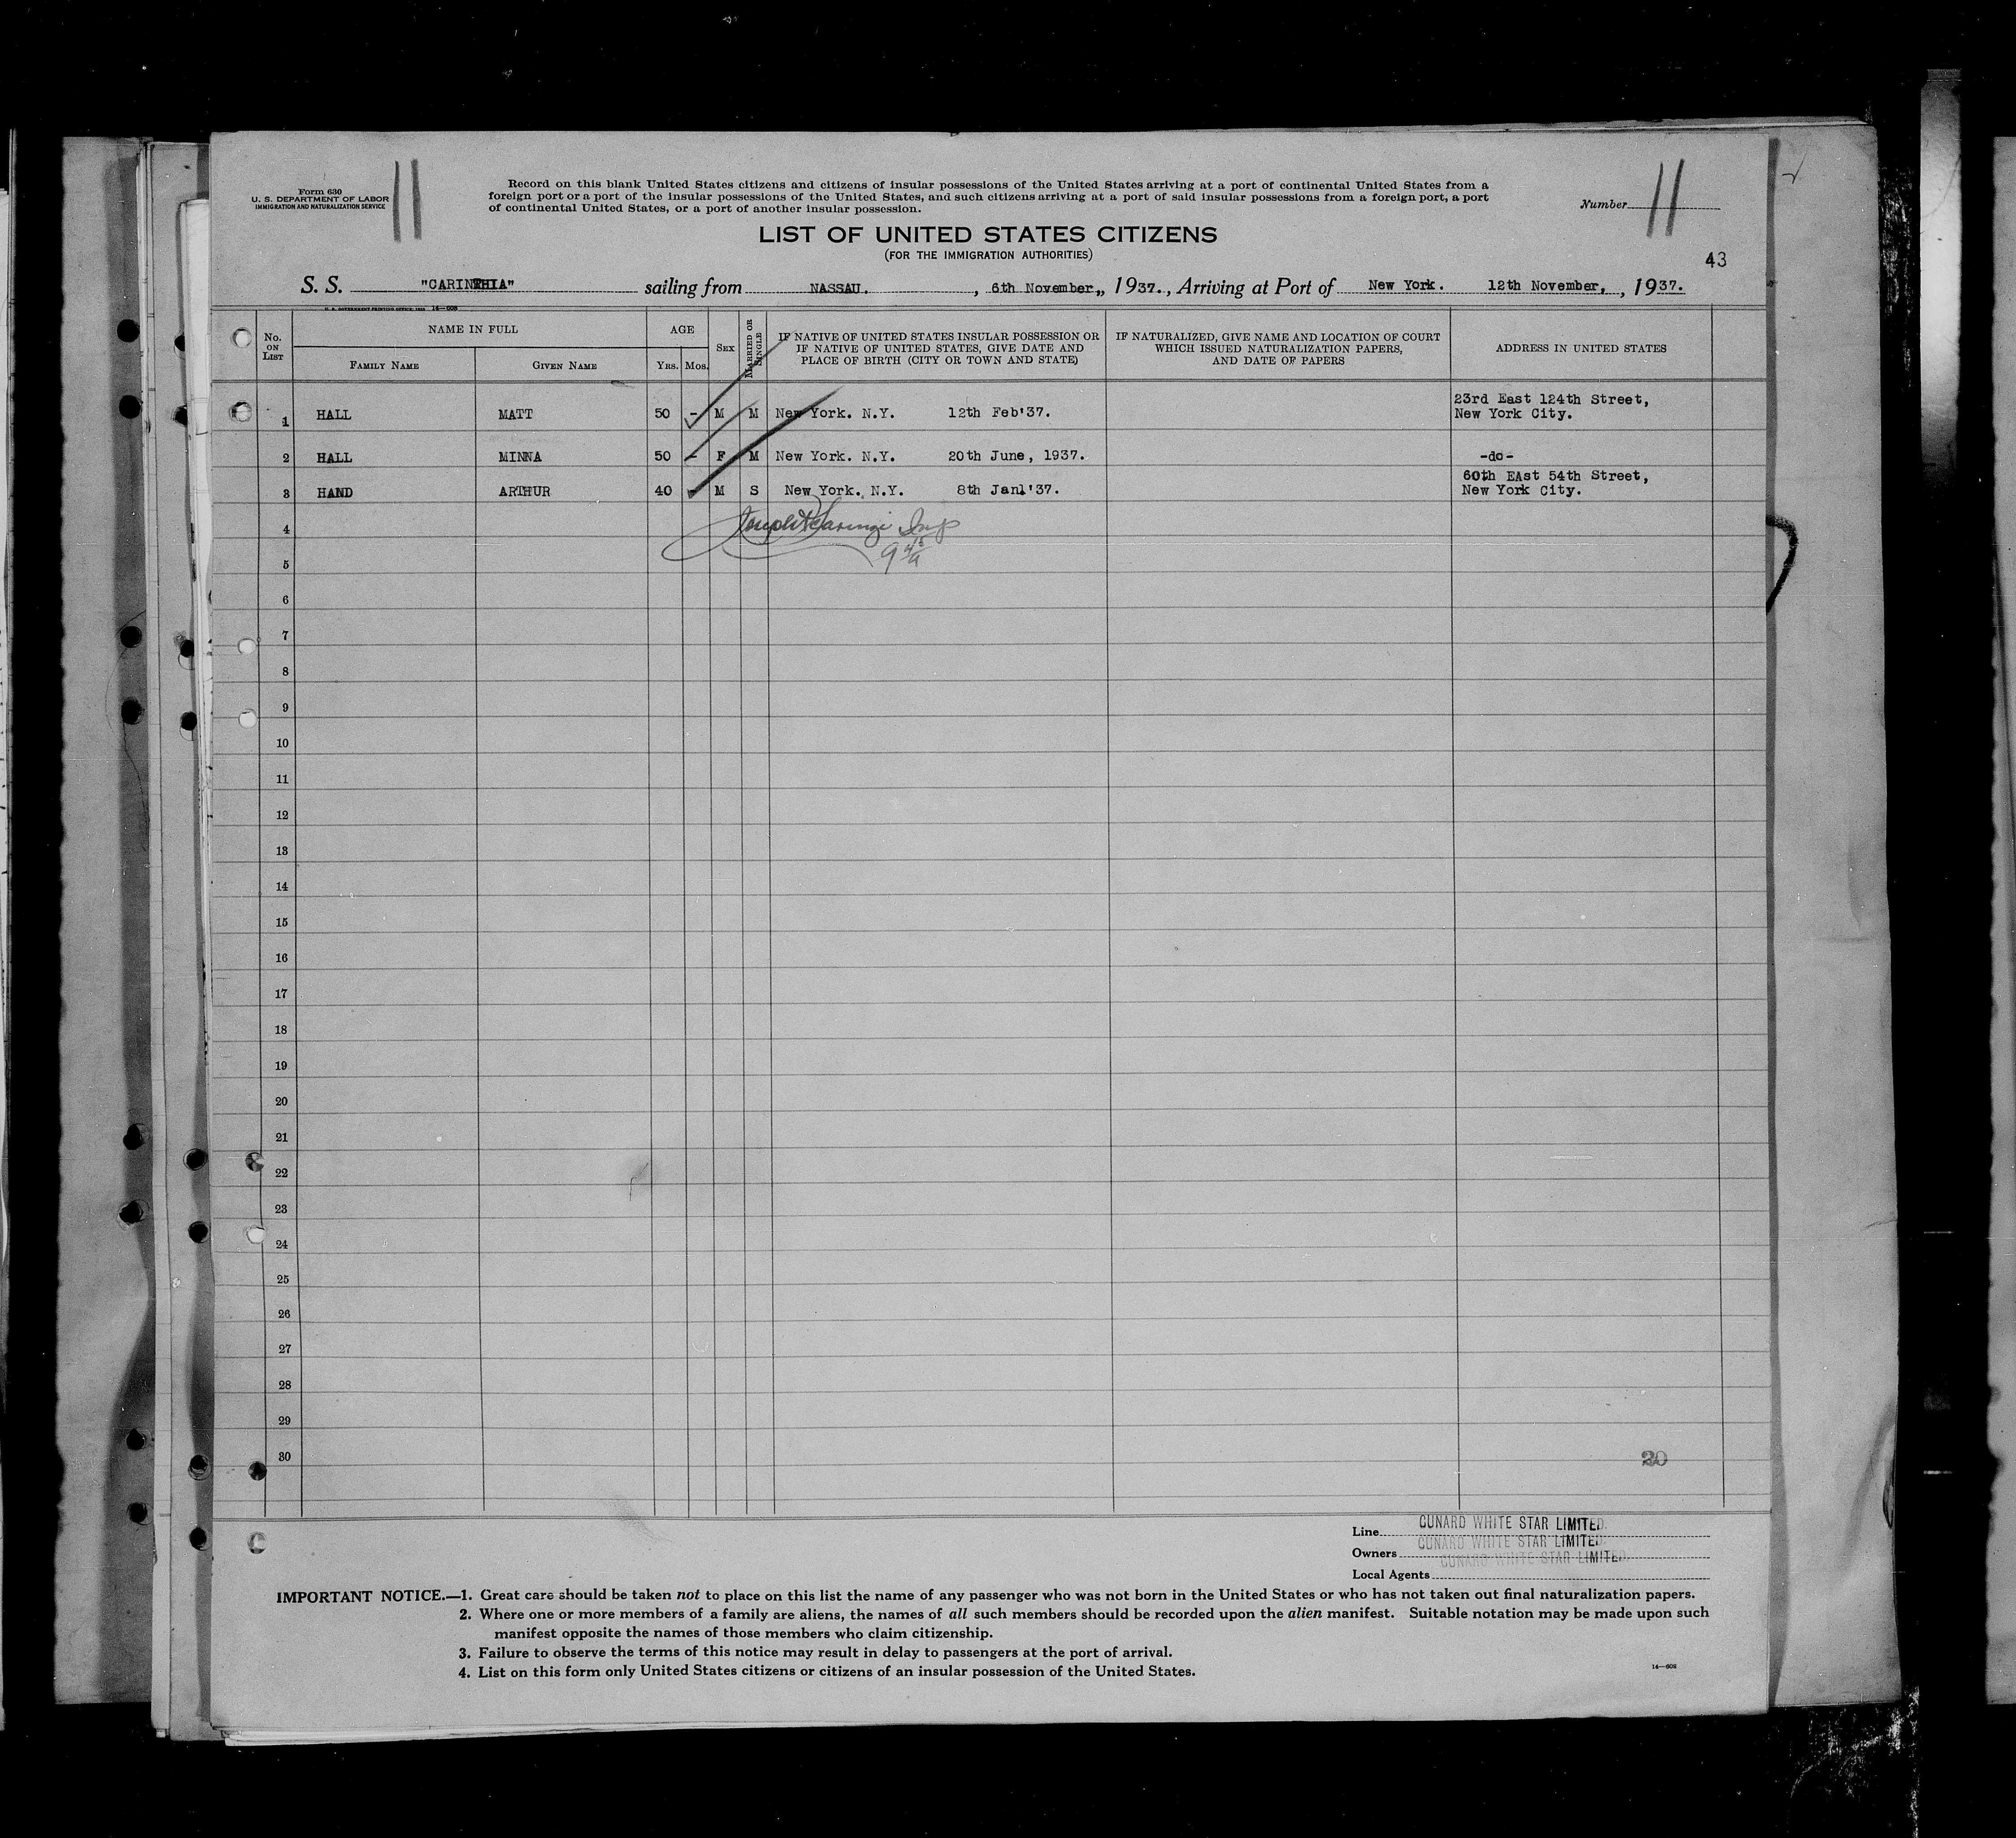 Form 630
U. S. DEPARTMENT OF LABOR
IMMIGRATION AND NATURALIZATION SERVICE
11
Record on this blank United States citizens and citizens of insular possessions of the United States arriving at a port of continental United States from a
foreign port or a port of the insular possessions of the United States, and such citizens arriving at a port of said insular possessions from a foreign port, a port
of continental United States, or a port of another insular possession.
Number 11
LIST OF UNITED STATES CITIZENS
(FOR THE IMMIGRATION AUTHORITIES)
43
S. S. "CARINTHIA" sailing from NASSAU. , 6th November,, 1937. , Arriving at Port of New York. 12th November, , 1937.
U. S. GOVERNMENT PRINTING OFFICE: 14—608
No. ON LIST NAME IN FULL AGE SEX MARRIED OR SINGLE IF NATIVE OF UNITED STATES INSULAR POSSESSION OR IF NATIVE OF UNITED STATES, GIVE DATE AND PLACE OF BIRTH (CITY OR TOWN AND STATE) IF NATURALIZED, GIVE NAME AND LOCATION OF COURT WHICH ISSUED NATURALIZATION PAPERS, AND DATE OF PAPERS ADDRESS IN UNITED STATES
FAMILY NAME GIVEN NAME YRS. MOS.
23rd East 124th Street,
1 HALL MATT 50 - M M New York. N.Y. 12th Feb'37. New York City.
2 HALL MINNA 50 - F M New York. N.Y. 20th June, 1937. -do-
60th EAst 54th Street,
3 HAND ARTHUR 40 - M S New York. N.Y. 8th Janl'37. New York City.
4
5
6
7
8
9
10
11
12
13
14
15
16
17
18
19
20
21
22
23
24
25
26
27
28
29
30
20
Line CUNARD WHITE STAR LIMITED.
Owners CUNARD WHITE STAR LIMITED.
CUNARD WHITE STAR LIMITED.
Local Agents
IMPORTANT NOTICE.—1. Great care should be taken not to place on this list the name of any passenger who was not born in the United States or who has not taken out final naturalization papers.
2. Where one or more members of a family are aliens, the names of all such members should be recorded upon the alien manifest. Suitable notation may be made upon such
manifest opposite the names of those members who claim citizenship.
3. Failure to observe the terms of this notice may result in delay to passengers at the port of arrival.
4. List on this form only United States citizens or citizens of an insular possession of the United States.
14—608